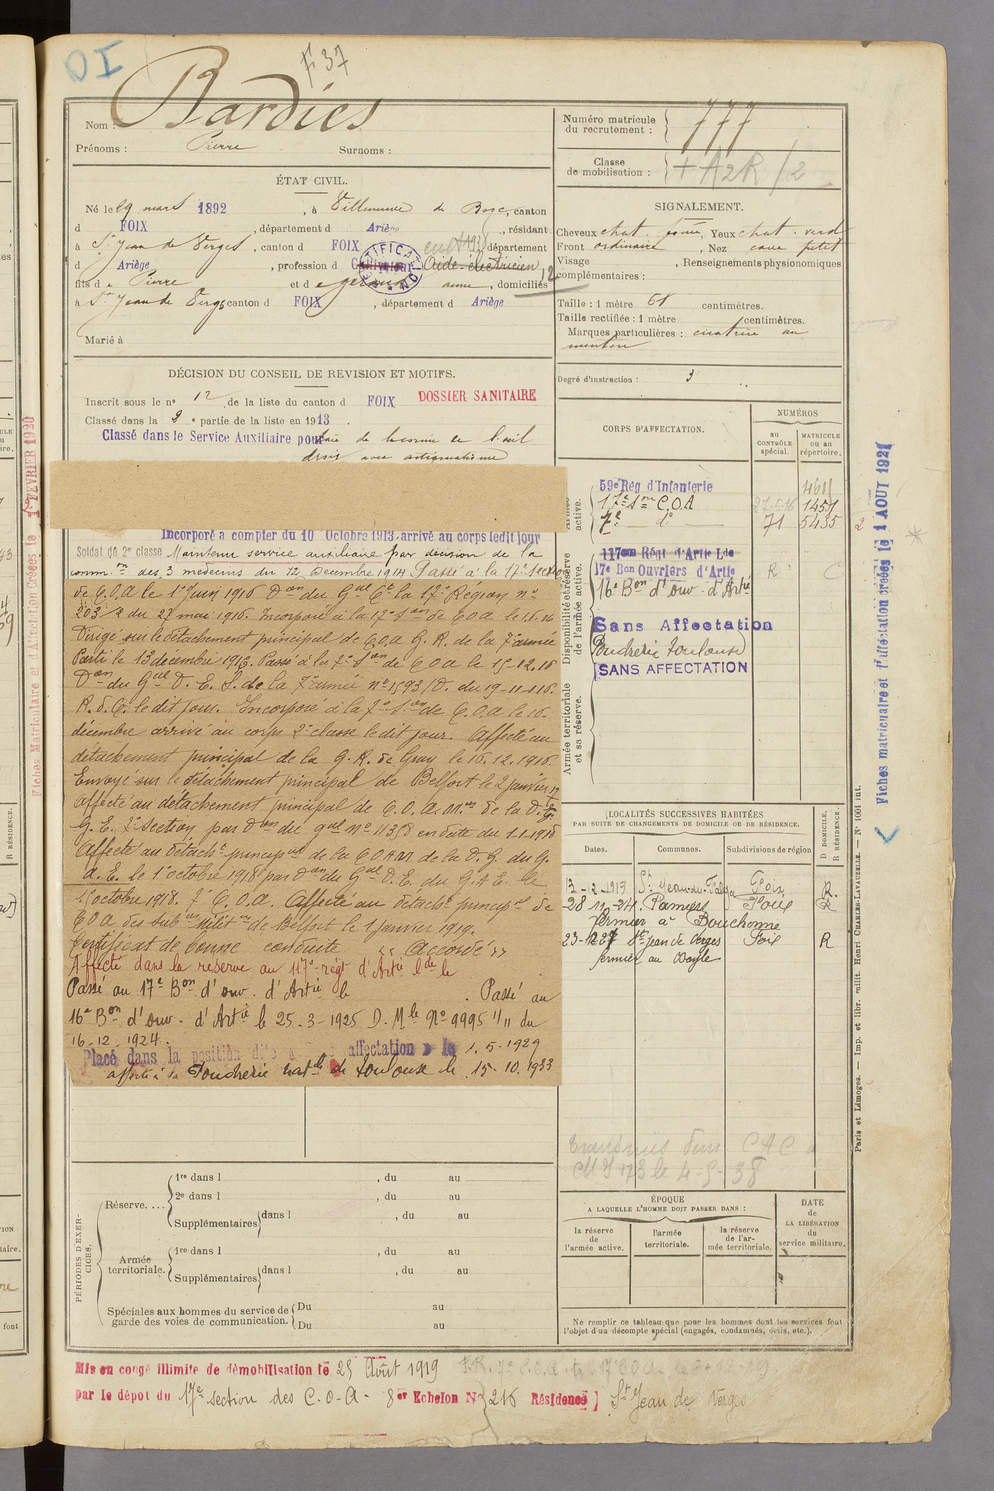 OI
F 37
Nom : Bardies
Prénoms : Pierre Surnoms :
Numéro matricule du recrutement : 777
Classe de mobilisation : + A2R / 2
ÉTAT CIVIL.
Né le 29 mars 1892, à Villeneuve du Bosc, canton
d FOIX, département d Ariège, résidant
à St Jean de Verges, canton d FOIX, département
d Ariège, profession d Cultivateur Aide-électricien
fils d e Pierre et d e anne, domiciliés
à St Jean de Verges canton d FOIX, département d Ariège
Marié à
SIGNALEMENT.
Cheveux chat. foncé, Yeux chat. verd
Front ordinaire, Nez cave petit
Visage , Renseignements physionomiques
complémentaires :
Taille : 1 mètre 68 centimètres.
Taille rectifiée : 1 mètre centimètres.
Marques particulières : cicatrice au
menton
Degré d'instruction : 3
DÉCISION DU CONSEIL DE REVISION ET MOTIFS.
Inscrit sous le n° 12 de la liste du canton d FOIX DOSSIER SANITAIRE
Classé dans la 3e partie de la liste en 1913.
Classé dans le Service Auxiliaire pour taie de la cornée de l'œil
droit avec astigmatisme
Incorporé à compter du 10 Octobre 1913. arrivé au corps ledit jour
Soldat de 2e classe Maintenu service auxiliaire par décision de la
comm.on des 3 médecins du 12 Décembre 1914 Passé à la 17e Section
de C.O.A le 1er Juin 1916 Don du Gal Ct la 17e Région no
203 R du 27 mai 1916. Incorporé à la 17e Son de COA le 1.6.16
Dirigé sur le détachement principal de C.O.A G.R. de la 7e armée
Parti le 13 décembre 1916. Passé à la 7e Son de C O A le 15-12.16
Don du Gal D. E. S. de la 7e armée no 1593/D. du 19-11-116.
R. d. C. le dit jour. Incorporé à la 7e Son de C.O.A le 16
décembre arrivé au corps 2e classe le dit jour. Affecté au
détachement principal de la G.R. de Gray le 16.12.1916.
Envoyé sur le détachement principal de Belfort le 2 janvier 17
Affecté au détachement principal de C.O.A. de la D.G.
G.E. 7e Section par Don du gal no 113/8 en date du 1.1.1918
Affecté au détacht principal de la C O A M de la D.G. du G.
A.E. le 1er octobre 1918 par Don du Gal D.E. du G.A.E. le
1er octobre 1918. 7e C.O.A. Affecté au détacht principal de
COA des sub milit de Belfort le 1 janvier 1919.
Certificat de bonne conduite « accordé »
Affecté dans la réserve au 117e régt d'Artie Lde le
Passé au 17e Bon d'ouv. d'Artie le . Passé au
16e Bon d'ouv. d'Artie le 25-3-1925 D. Mle No 9995 1/11 du
16-12-1924.
Placé dans la position dite affectation le 1.5.1929
affecté à la Poudrerie natle de Toulouse le 15-10.1933
CORPS D'AFFECTATION.
NUMÉROS
au CONTRÔLE spécial.
MATRICULE ou au répertoire.
Armée active.
59e Rég d'Infanterie 4611
17e Son C.O.A 27.5.16 1457
7e do 71 5435
Disponibilité et réserve de l'armée active.
117em Régt d'Artie Lde
17e Bon Ouvriers d'Artie R
16e Bon d'ouv. d'Artie
Sans Affectation
Poudrerie Toulouse
SANS AFFECTATION
Armée territoriale et sa réserve.
LOCALITÉS SUCCESSIVES HABITÉES
PAR SUITE DE CHANGEMENTS DE DOMICILE OU DE RÉSIDENCE.
Dates. Communes. Subdivisions de région D DOMICILE, R RÉSIDENCE.
-12-1919 St Jean du Falga Foix R.
28 11-24 Pamiers Foix R
fermier à Bouchonne
23-12-27 St jean de Verges Foix R
fermier au
CAC
le 4-5-38
PÉRIODES D'EXERCICES.
Réserve.... 1re dans l , du au
2e dans l , du au
Supplémentaires dans l , du au
Armée territoriale. 1re dans l , du au
Supplémentaires dans l , du au
Spéciales aux hommes du service de garde des voies de communication. Du au
Du au
ÉPOQUE
A LAQUELLE L'HOMME DOIT PASSER DANS :
la réserve de l'armée active.
l'armée territoriale.
la réserve de l'armée territoriale.
DATE de LA LIBÉRATION du service militaire.
Ne remplir ce tableau que pour les hommes dont les services font
l'objet d'un décompte spécial (engagés, condamnés, omis, etc.).
Mis en congé illimité de démobilisation le 25 Août 1919
par le dépôt du 17e section des C.O.A - 8er Echelon No 216 Résidence] St Jean de Verges
Paris et Limoges. — Imp. et libr. milit. Henri CHARLES-LAVAUZELLE. — N° 1001 int.
Fiches matriculaire et d'affectation créées le 1 AOUT 1921
Fiches Matriculaire et d'Affectation Créées le FEVRIER 1920